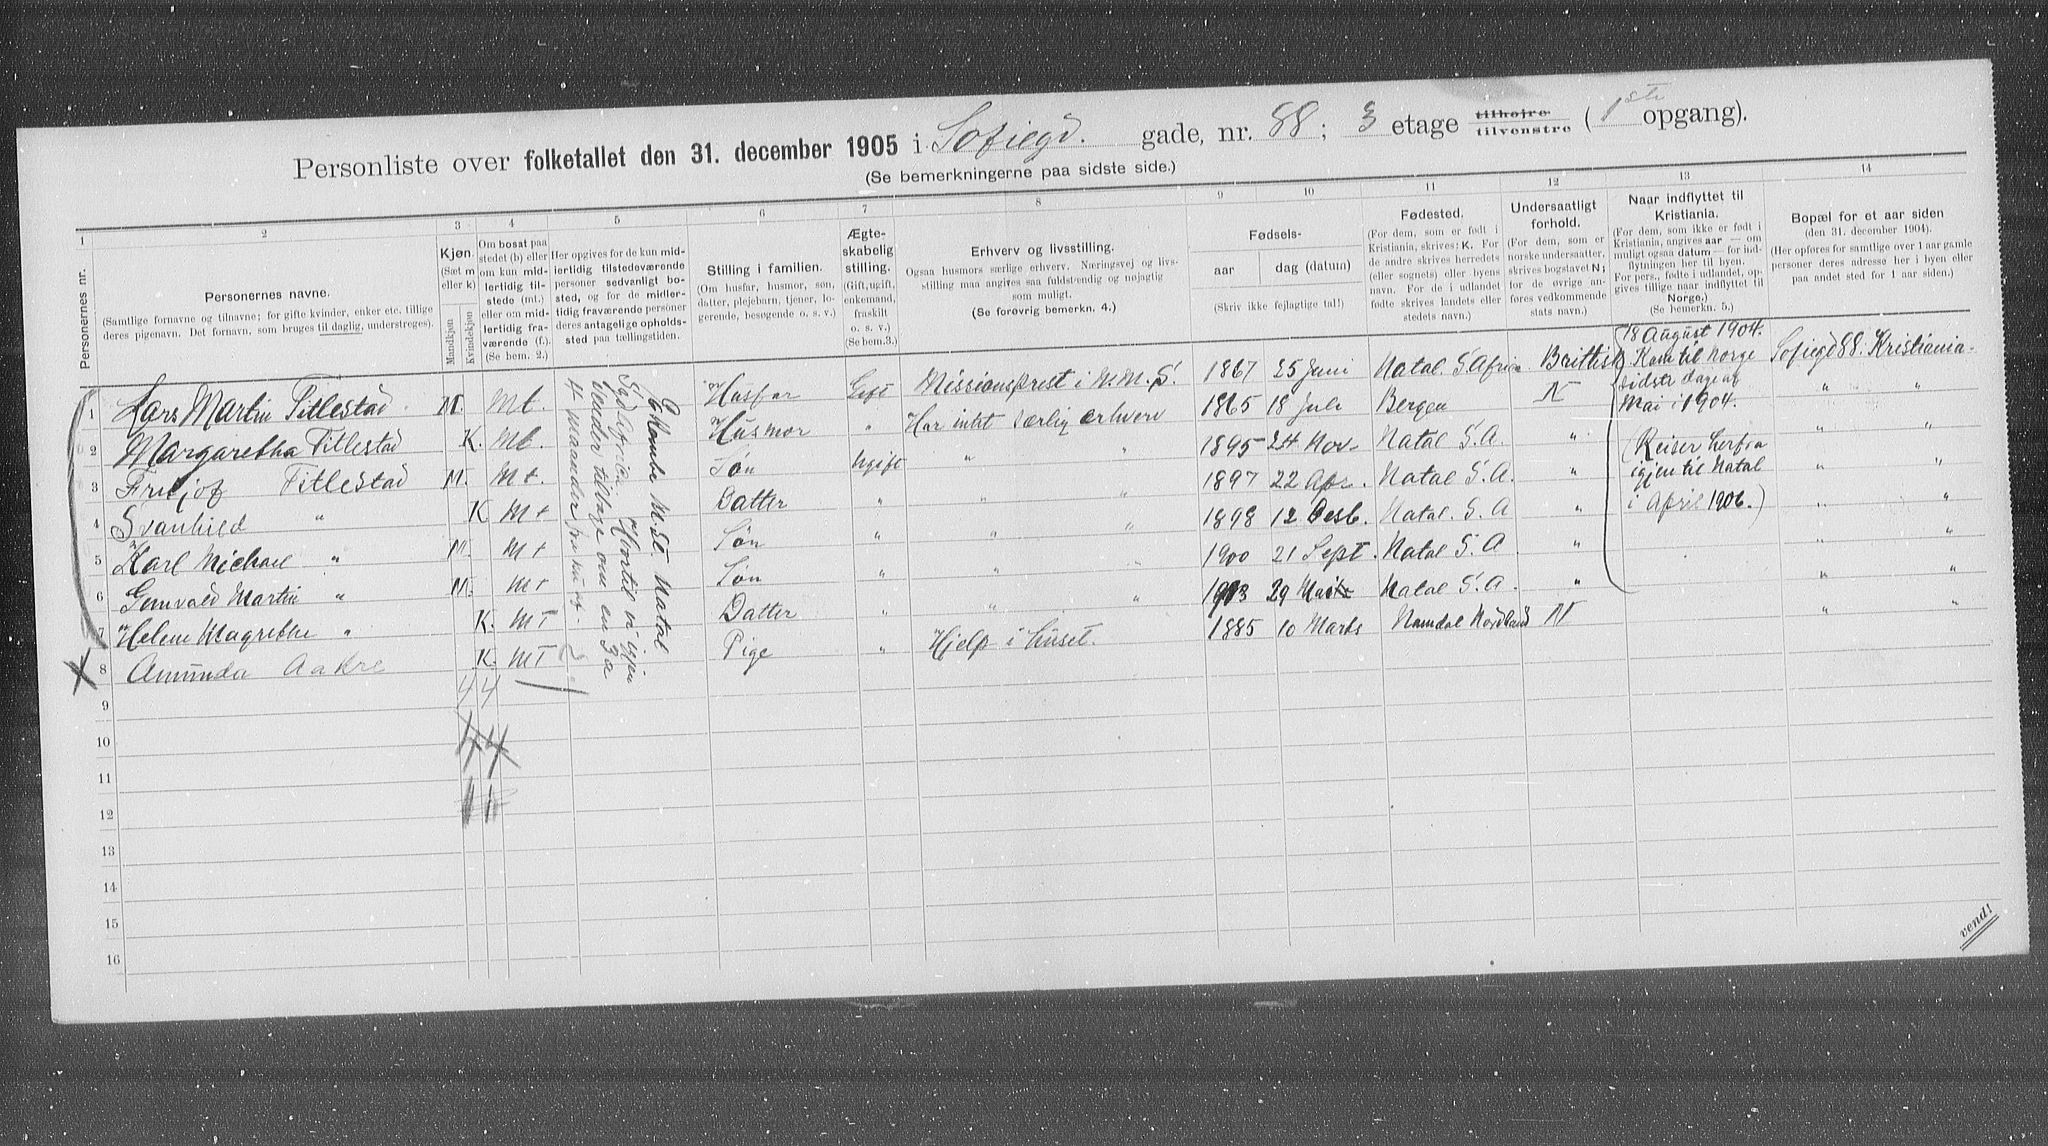 Personliste over folketallet den 31. december 1905 i Sofiegd. gade, nr. 88; 3 etage tilhøjre tilvenstre (1ste opgang).
(Se bemerkningerne paa sidste side.)
1 2 3 4 5 6 7 8 9 10 11 12 13 14
Personernes nr.
Personernes navne.
(Samtlige fornavne og tilnavne; for gifte kvinder, enker etc. tillige deres pigenavn. Det fornavn, som bruges til daglig, understreges).
Kjøn.
(Sæt m eller k)
Mandkjøn
Kvindekjøn
Om bosat paa stedet (b) eller om kun midlertidig tilstede (mt.) eller om midlertidig fraværende (f.).
(Se bem. 2.)
Her opgives for de kun midlertidig tilstedeværende personer sedvanligt bosted, og for de midlertidig fraværende personer deres antagelige opholdssted paa tællingstiden.
Stilling i familien.
(Om husfar, husmor, søn, datter, plejebarn, tjener, logerende, besøgende o. s. v.)
Ægteskabelig stilling.
(Gift, ugift, enkemand, fraskilt o. s. v.)
(Se bem.3.)
Erhverv og livsstilling.
Ogsaa husmors særlige erhverv. Næringsvej og livsstilling maa angives saa fuldstændig og nøjagtig som muligt.
(Se forøvrig bemerkn. 4.)
Fødsels-
aar
dag (datum)
(Skriv ikke fejlagtige tal!)
Fødested.
(For dem, som er født i Kristiania, skrives: K. For de andre skrives herredets (eller sognets) eller byens navn. For de i udlandet fødte skrives landets eller stedets navn.)
Undersaatligt forhold.
(For dem, som er norske undersaatter, skrives bogstavet N; for de øvrige anføres vedkommende stats navn.)
Naar indflyttet til Kristiania.
(For dem, som ikke er født i Kristiania, angives aar — om muligt ogsaa datum — for indflytningen her til byen. For pers., fødte i udlandet, opgives tillige naar indflyttet til Norge.)
(Se bemerkn. 5.)
Bopæl for et aar siden
(den 31. december 1904).
(Her opføres for samtlige over 1 aar gamle personer deres adresse her i byen eller paa andet sted for 1 aar siden.)
1 Lars Martin Titlestad M. Mt. Husfar Gift Missionsprest i N.M.S. 1867 25 Juni Natal S. Afrika Brittisk Sofiegd 88. Kristiania
2 Margaretha Titlestad K. Mt. Husmor " Har intet særlig erhverv 1865 18 Juli Bergen N " "
3 Fritjof Titlestad M. Mt. Søn Ugift " " 1895 24 Nov. Natal S. A. " " "
4 Svanhild " K Mt Datter " " " 1897 22 Apr. Natal S. A. " " "
5 Karl Michael " M. Mt Søn " " " 1898 12 Desb. Natal. S. A " " "
6 Gunvald Martin " M. Mt Søn " " " 1900 21 Sept. Natal S. A. " " "
7 Helene Magrethe " K. MT Datter " " " 1903 29 Natal S. A. " " "
8 Amunda Aakre K. MT Pige " Hjelp i huset. 1885 10 Marts Namdal Nordland N " "
Ekombe M. St. Natal
Sydafrika. Hvortil vi igjen
vender tilbage om en 3 a
4 maaneder
18 August 1904.
Kom til Norge
sidste dage af
Mai i 1904.
(Reiser herfra
igjen til Natal
i April 1906.)
4 4
4 4
9
10
11
12
13
14
15
16
vend!